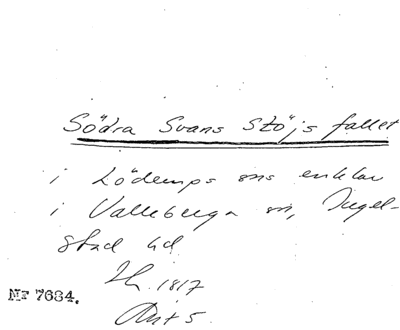 Södra Svans Stöjs fallet
i Löderups sns enklav
i Valleberga sn, Ingel-
stad hd
1817
Nr 7684.
Ant 5